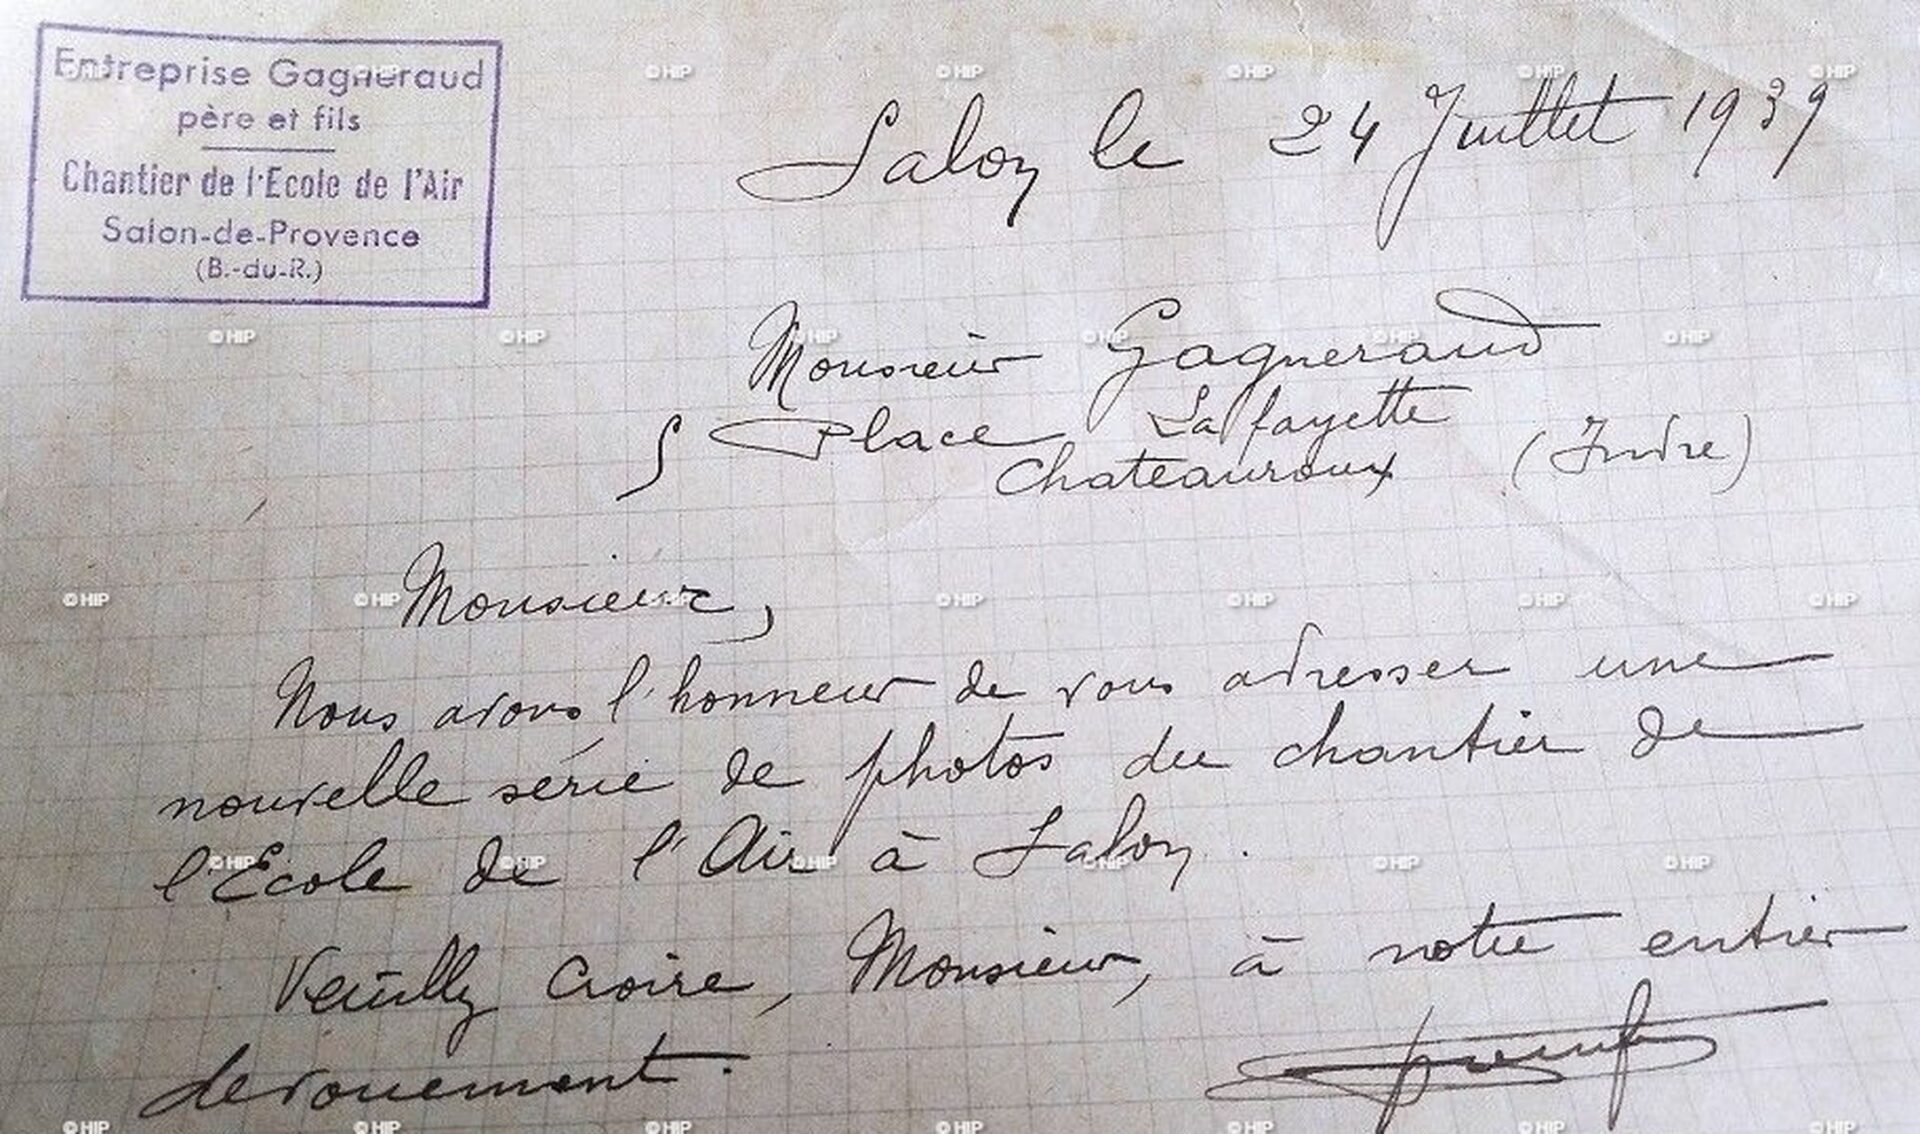 Entreprise Gagneraud
père et fils
Chantier de l'Ecole de l'Air
Salon-de-Provence
(B.-du-R.)
Salon le 24 Juillet 1939
Monsieur Gagneraud
Place La fayette
Chateauroux (Indre)
Monsieur,
Nous avons l'honneur de vous adresser une
nouvelle série de photos du chantier de
l'Ecole de l'Air à Salon.
Veuillez croire, Monsieur, à notre entier
devouement.
© HIP